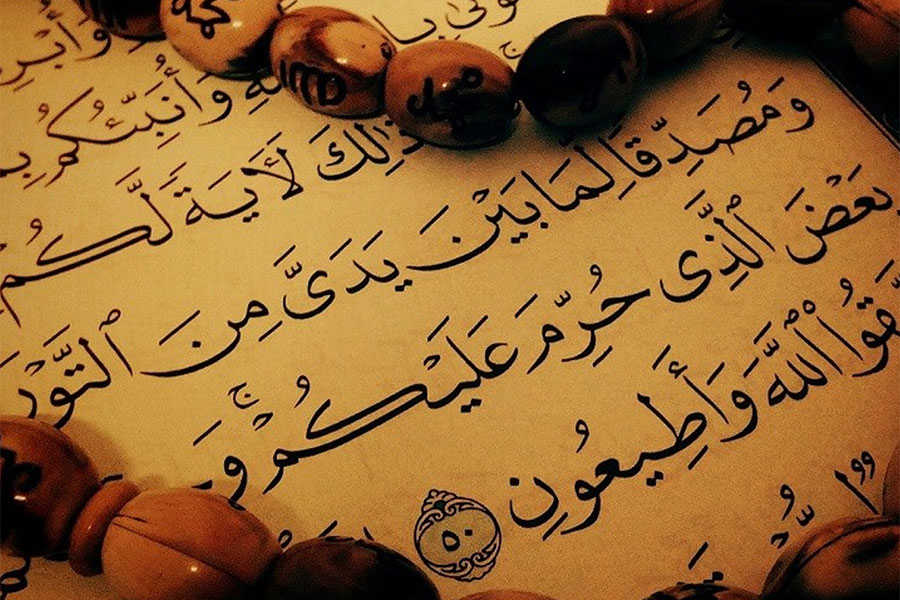 وَأُبْرِ
وَأُنَبِّئُكُم بِـ
محمد
ذَٰلِكَ لَأَيَةً لَّكُمْ
وَمُصَدِّقًا لِّمَا بَيْنَ يَدَىَّ مِنَ ٱلتَّوْرَ
بَعْضَ ٱلَّذِى حُرِّمَ عَلَيْكُمْ ۚ وَ
تَّقُوا۟ ٱللَّهَ وَأَطِيعُونِ ٥٠